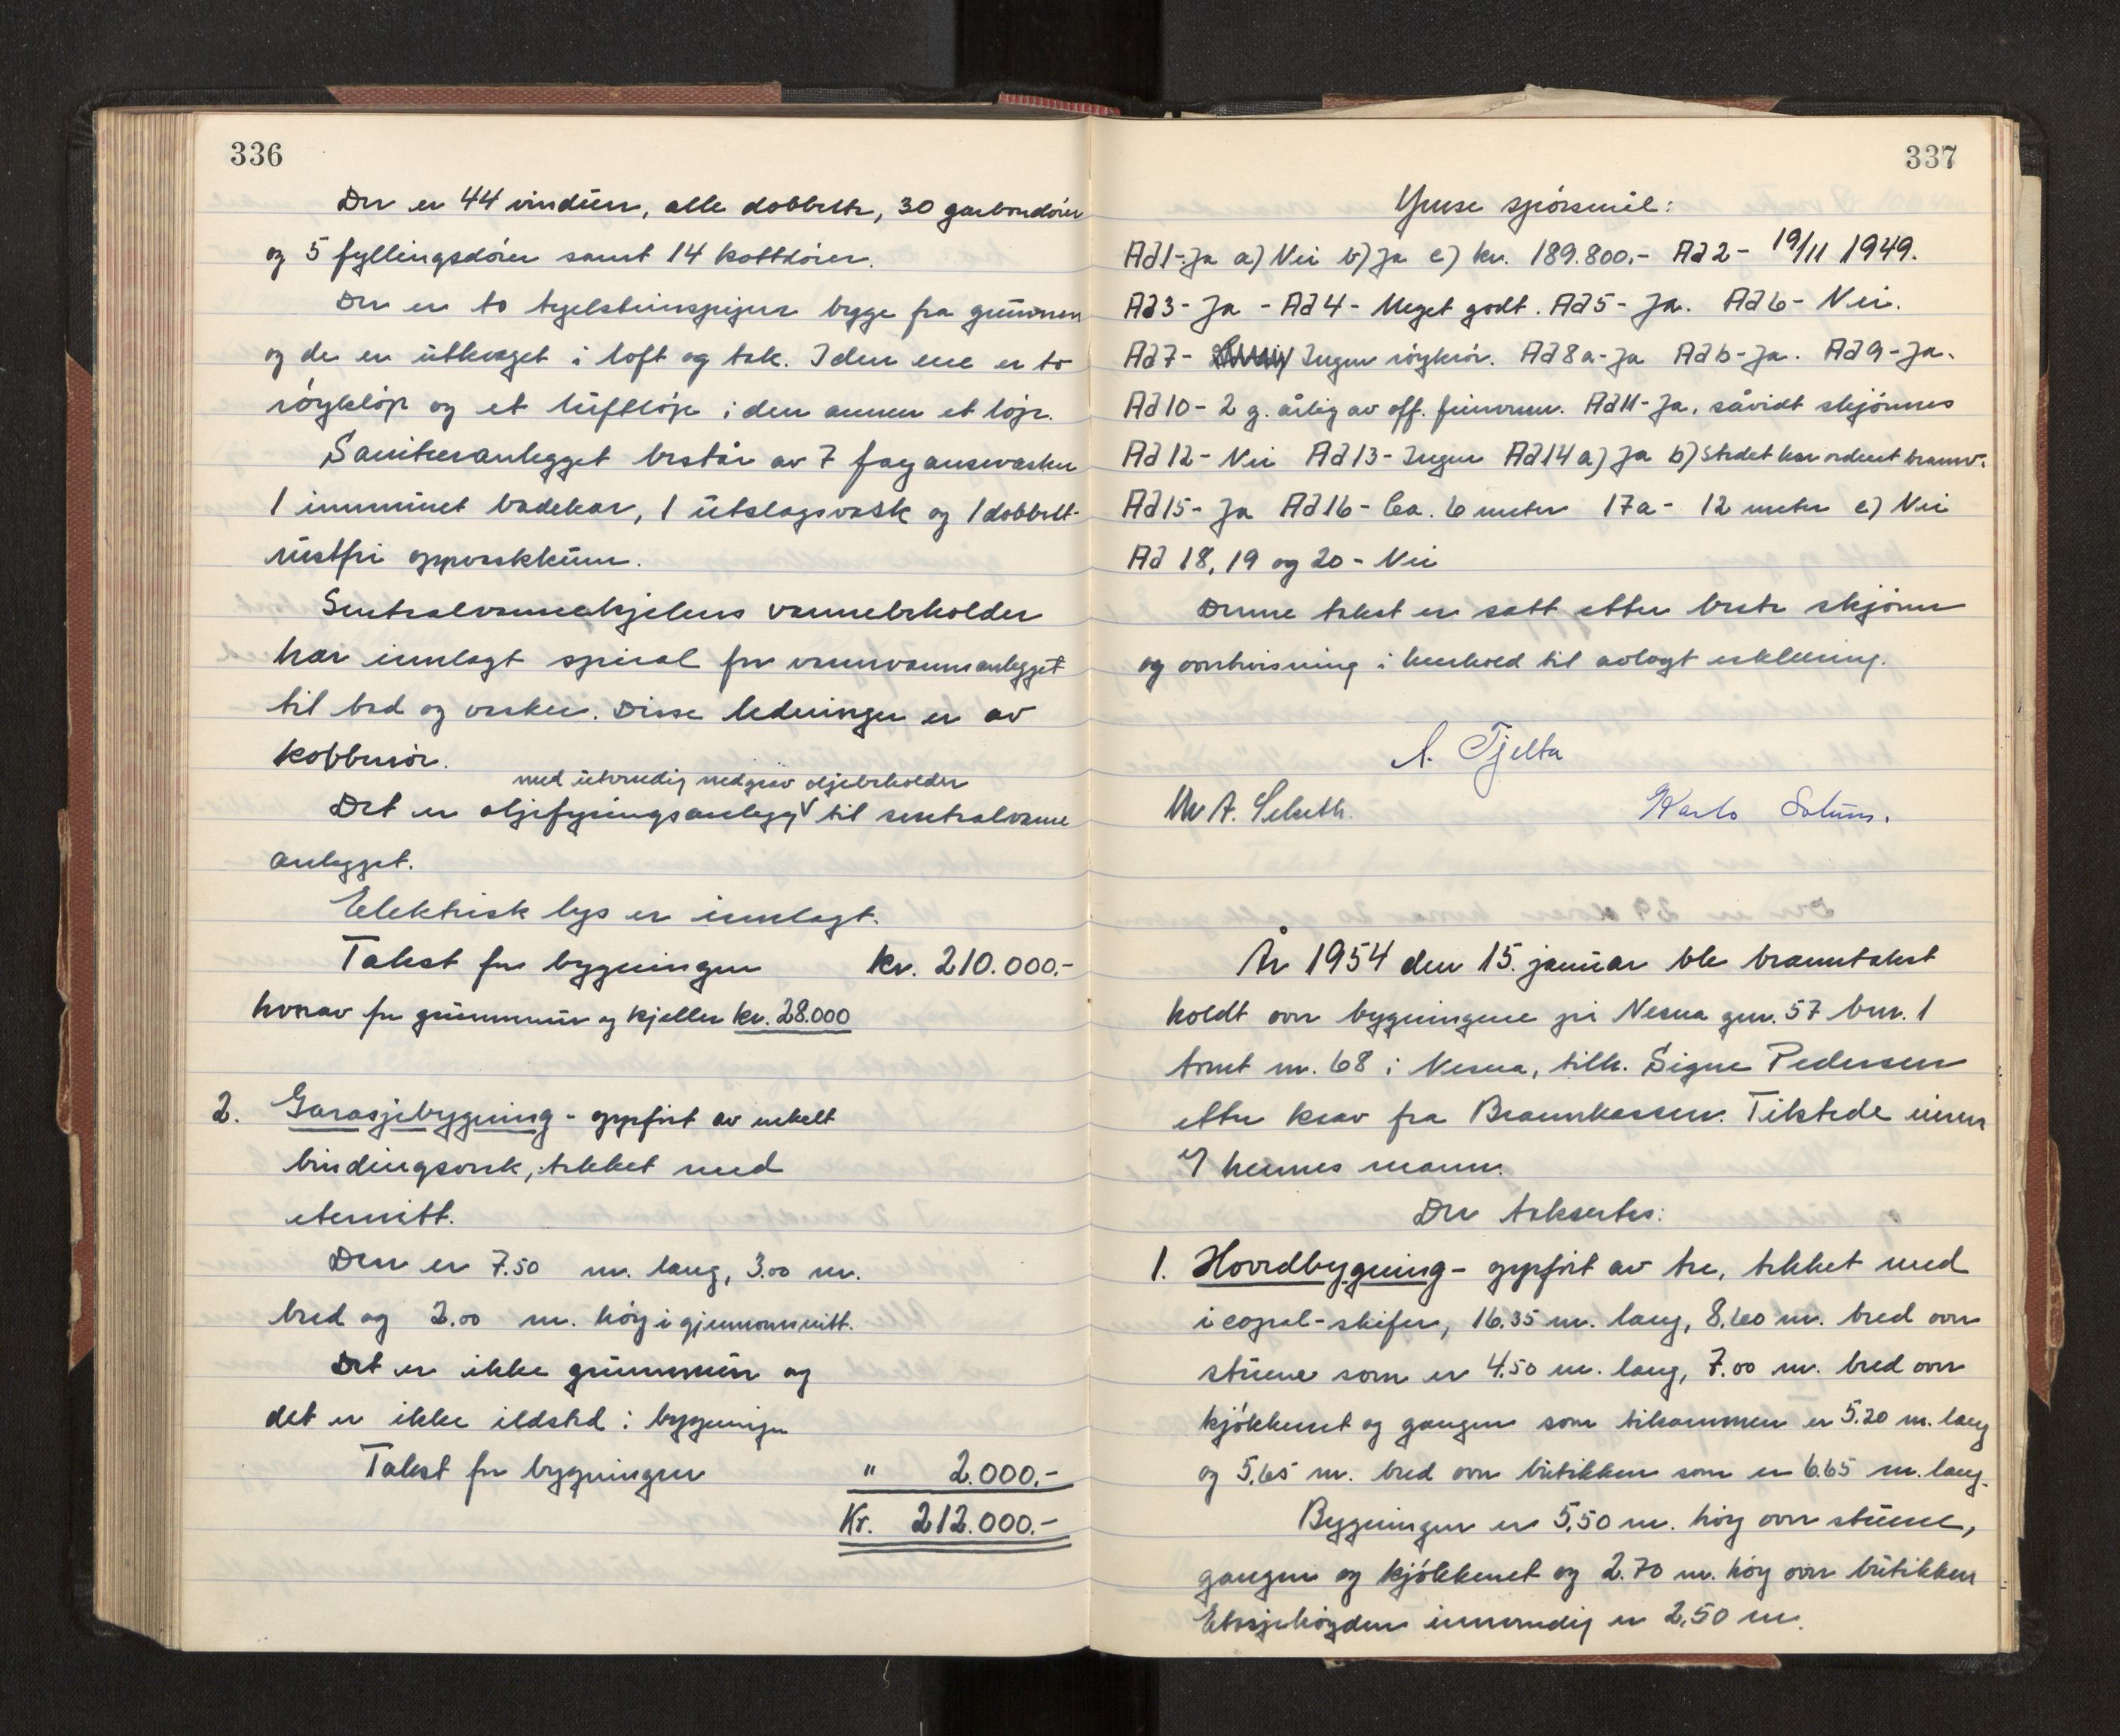 336
Der er 44 vinduer, alle dobbelte, 30 gaboondører
og 5 fyllingsdører samt 14 kottdører.
Der er to teglsteinspiper bygge fra grunnen
og de er utkraget i loft og tak. I den ene er to
røykløp og et luftløp i den annen et løp.
Sanitæranlegget består av 7 fayansevasker
1 innmuret badekar, 1 utslagsvask og 1 dobbelt-
rustfri oppvaskkum.
Sentralvarmekjelens varmebeholder
har innlagt spiral for varmvannsanlegget
til bad og vasker. Disse ledninger er av
kobberrør.
med utvendig nedgrav oljebeholder
Det er oljefyringsanlegg til sentralvarme
anlegget.
Elektrisk lys er innlagt.
Takst for bygningen kr. 210.000.-
hvorav for grunnmur og kjeller kr. 28.000
2. Garasjebygning - oppført av enkelt
bindingsverk, tekket med
eternitt.
Den er 7.50 m. lang, 3.00 m.
bred og 2.00 m. høy i gjennomsnitt.
Det er ikke grunnmur og
det er ikke ildsted i bygningen
Takst for bygningen " 2.000.-
Kr. 212.000.-
337
Ymse spørsmål:
Ad 1-Ja a) Nei b) Ja c) kr. 189.800.- Ad 2- 19/11 1949.
Ad 3- Ja - Ad 4- Meget godt. Ad 5- Ja. Ad 6- Nei.
Ad 7- Ingen røykrør. Ad 8a-Ja Ad b-Ja. Ad 9-Ja.
Ad 10- 2 g. årlig av off. feiervesen. Ad 11-Ja, såvidt skjønnes
Ad 12- Nei Ad 13- Ingen Ad 14 a) Ja b) Stedet har ordnet brannv.
Ad 15- Ja Ad 16- Ca. 6 meter 17a- 12 meter c) Nei
Ad 18, 19 og 20- Nei
Denne takst er satt etter beste skjønn
og overbevisning i henhold til avlagt erklæring.
A. Tjelta
Karlo Solum.
År 1954 den 15. januar ble branntakst
holdt over bygningene på Nesna gnr. 57 bnr. 1
tomt nr. 68 i Nesna, tilh. Signe Pedersen
etter krav fra Brannkassen. Tilstede eieren
og hennes mann.
Der taksertes:
1. Hovedbygning - oppført av tre, tekket med
icopal-skifer, 16.35 m. lang, 8.60 m. bred over
stuene som er 4.50 m. lang, 7.00 m. bred over
kjøkkenet og gangen som tilsammen er 5.20 m. lang
og 5.65 m. bred over butikken som er 6.65 m. lang.
Bygningen er 5.50 m. høy over stuene,
gangen og kjøkkenet og 2.70 m. høy over butikken
Etasjehøyden innvendig er 2,50 m.